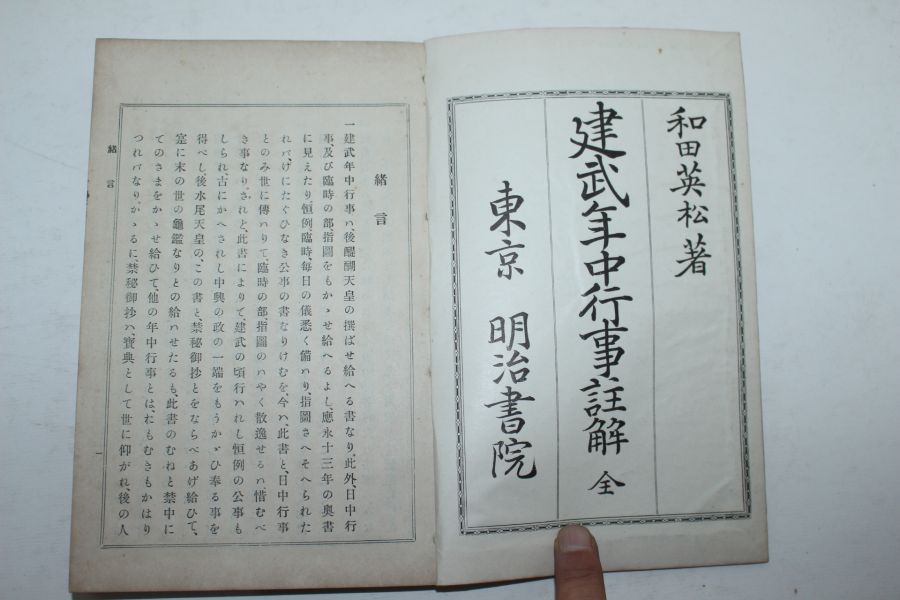 和田英松著
建武年中行事註解 全
東京 明治書院
緒言
一建武年中行事ハ、後醍醐天皇の撰ばせ給へる書なり、此外、日中行
事、及び臨時の部指圖をもかゝせ給へるよし、應永十三年の奥書
に見えたり、恒例、臨時、毎日の儀悉く備ハり、指圖さへそへられた
れバ、げにたぐひなき公事の書なりけむを、今ハ、此書と、日中行事
とのみ世に傳ハりて、臨時の部、指圖のはやく散逸せるハ、惜むべ
き事なり、されと、此書によりて、建武の頃行ハれし恒例の公事も
しられ、古にかへされし中興の政の一端をもうかゞひ奉る事を
得べし、後水尾天皇の、この書と、禁秘御抄とをならべあげ給ひて、
寔に末の世の龜鑑なりとの給ハせたるも、此書のむねと禁中に
てのさまをかゝせ給ひて、他の年中行事とは、おもむきもかはり
つれバなり、かゝるに、禁秘御抄ハ、寶典として世に仰がれ、後の人
緒言
一